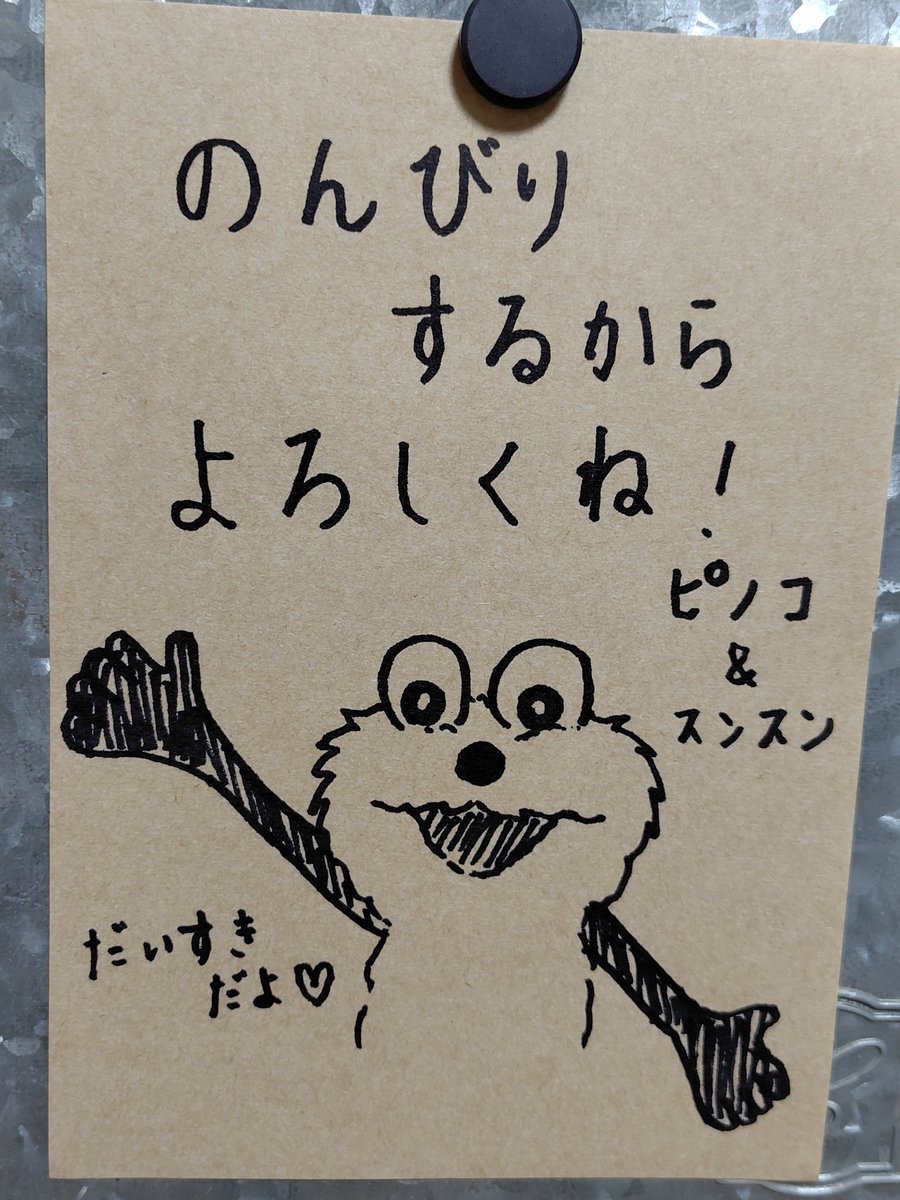 のんびり
するから
よろしくね!
ピノコ
&
スンスン
だいすき
だよ♡